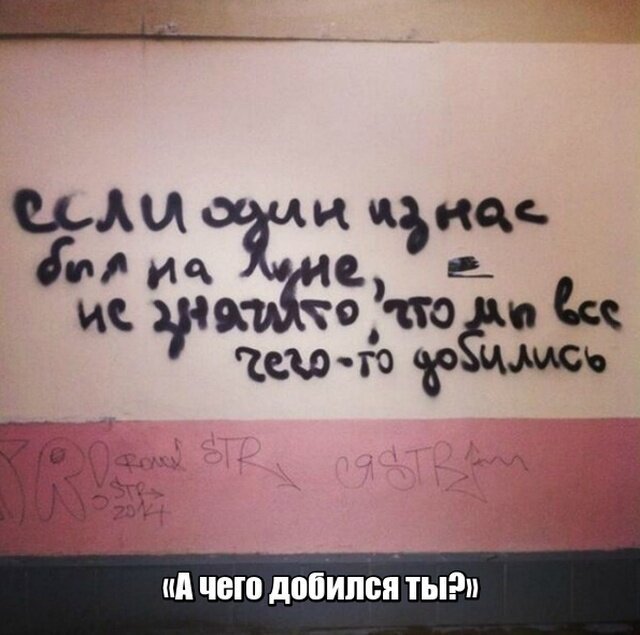 если один из нас
был на Луне,
не значит то, что мы все
чего-то добились
STR
STR
2014
«А чего добился ты?»